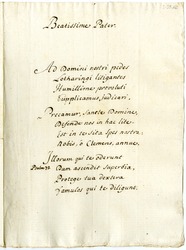 Beatissime Pater.
Ad Domini nostri pedes
Lotharingi litigantes
Humillime provoluti
Supplicamus, judicari,
Precamur, Sancte Domine,
Defende nos in hac lite.
Est in te Sita Spes nostra,
Nobis, o Clemens, annue.
Illorum qui te oderunt
Dum ascendit superbia,
Protege tua dextera
famulos qui te diligunt.